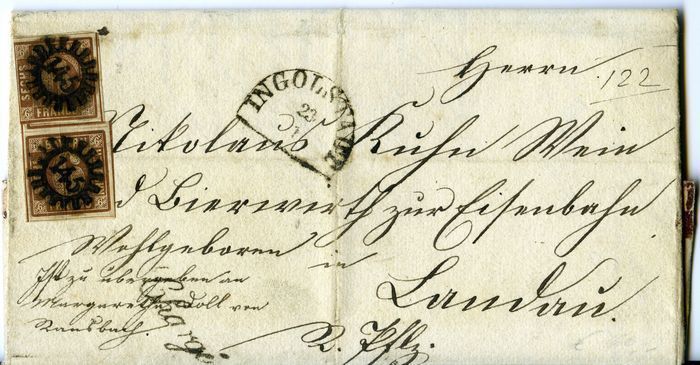 Herrn
122
Nikolaus Kuhn Wein
d Bierwirth zur Eisenbahn
Wohlgeboren in
Landau.
R. Pflz.
Ist zu übergeben an
Margaretha Doll von
Ransbach.
INGOLSTADT
23
SECHS
145
145